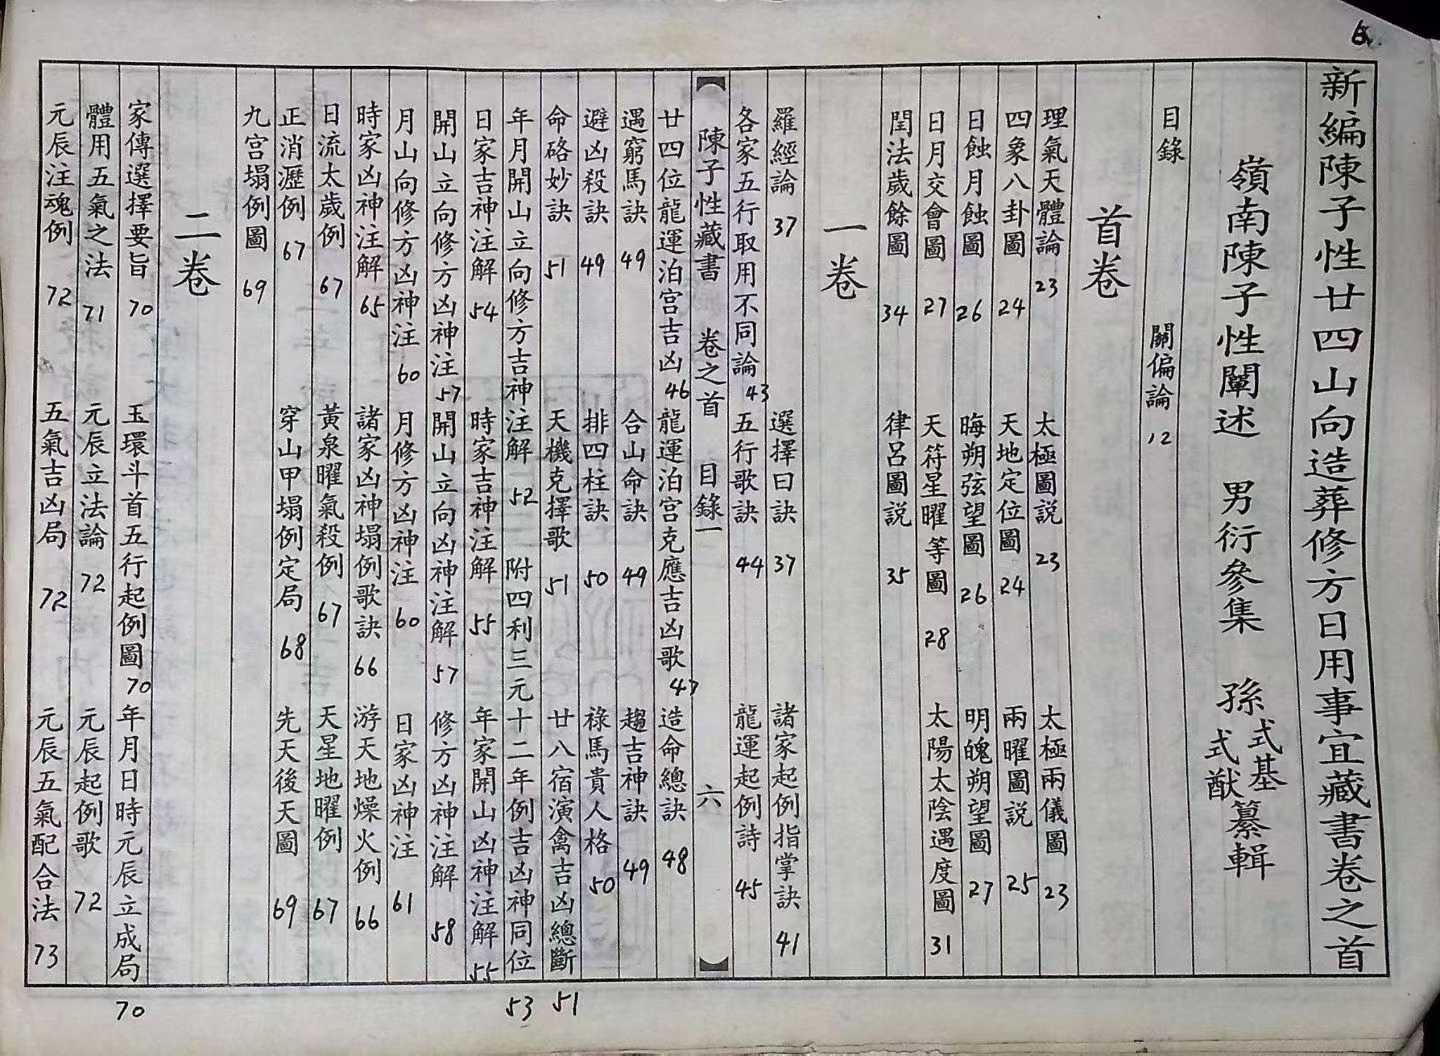 6
新編陳子性廿四山向造葬修方日用事宜藏書卷之首
嶺南陳子性闡述　男衍參集　孫式基式猷纂輯
目錄　闢偏論 12
首卷
理氣天體論 23　太極圖説 23　太極兩儀圖 23
四象八卦圖 24　天地定位圖 24　兩曜圖説 25
日蝕月蝕圖 26　晦朔弦望圖 26　明魄朔望圖 27
日月交會圖 27　天符星曜等圖 28　太陽太陰遇度圖 31
閏法歲餘圖 34　律呂圖説 35
一卷
羅經論 37　選擇日訣 37　諸家起例指掌訣 41
各家五行取用不同論 43　五行歌訣 44　龍運起例詩 45
陳子性藏書　卷之首　目錄一　六
廿四位龍運泊宮吉凶 46　龍運泊宮克應吉凶歌 47　造命總訣 48
遇窮馬訣 49　合山命訣 49　趨吉神訣 49
避凶殺訣 49　排四柱訣 50　祿馬貴人格 50
命硌妙訣 51　天機克擇歌 51　廿八宿演禽吉凶總斷 51
年月開山立向修方吉神注解 52　附四利三元十二年例吉凶神同位 53
日家吉神注解 54　時家吉神注解 55　年家開山凶神注解 55
開山立向修方凶神注 57　開山立向凶神注解 57　修方凶神注解 58
月山向修方凶神注 60　月修方凶神注 60　日家凶神注 61
時家凶神注解 65　諸家凶神塌例歌訣 66　游天地燥火例 66
日流太歲例 67　黃泉曜氣殺例 67　天星地曜例 67
正消瀝例 67　穿山甲塌例定局 68　先天後天圖 69
九宮塌例圖 69
二卷
家傳選擇要旨 70　玉環斗首五行起例圖 70　年月日時元辰立成局 70
體用五氣之法 71　元辰立法論 72　元辰起例歌 72
元辰注魂例 72　五氣吉凶局 72　元辰五氣配合法 73